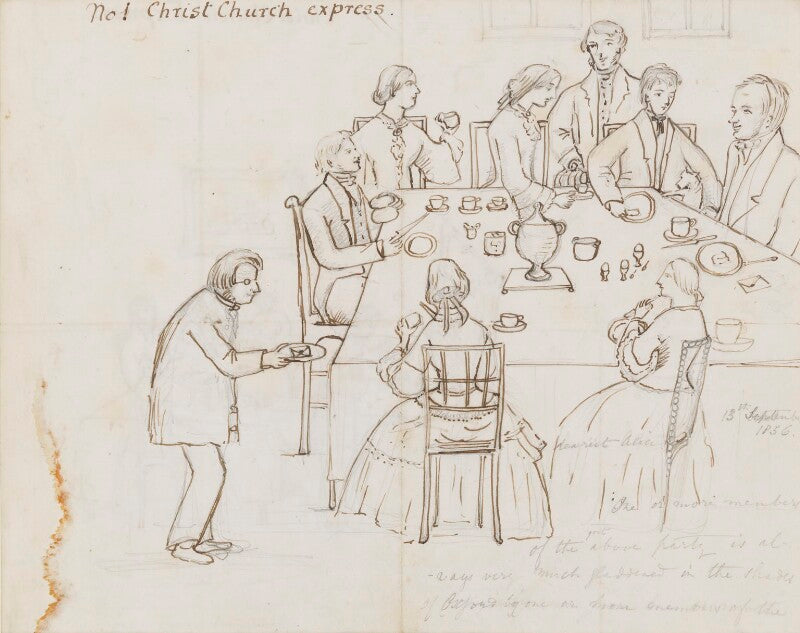 No 1 Christ Church express.
13th September
1856.
Dearest Alice
One or more members
of the above party is al-
-ways very much gladdened in the shades
of Oxford by one or more members of the